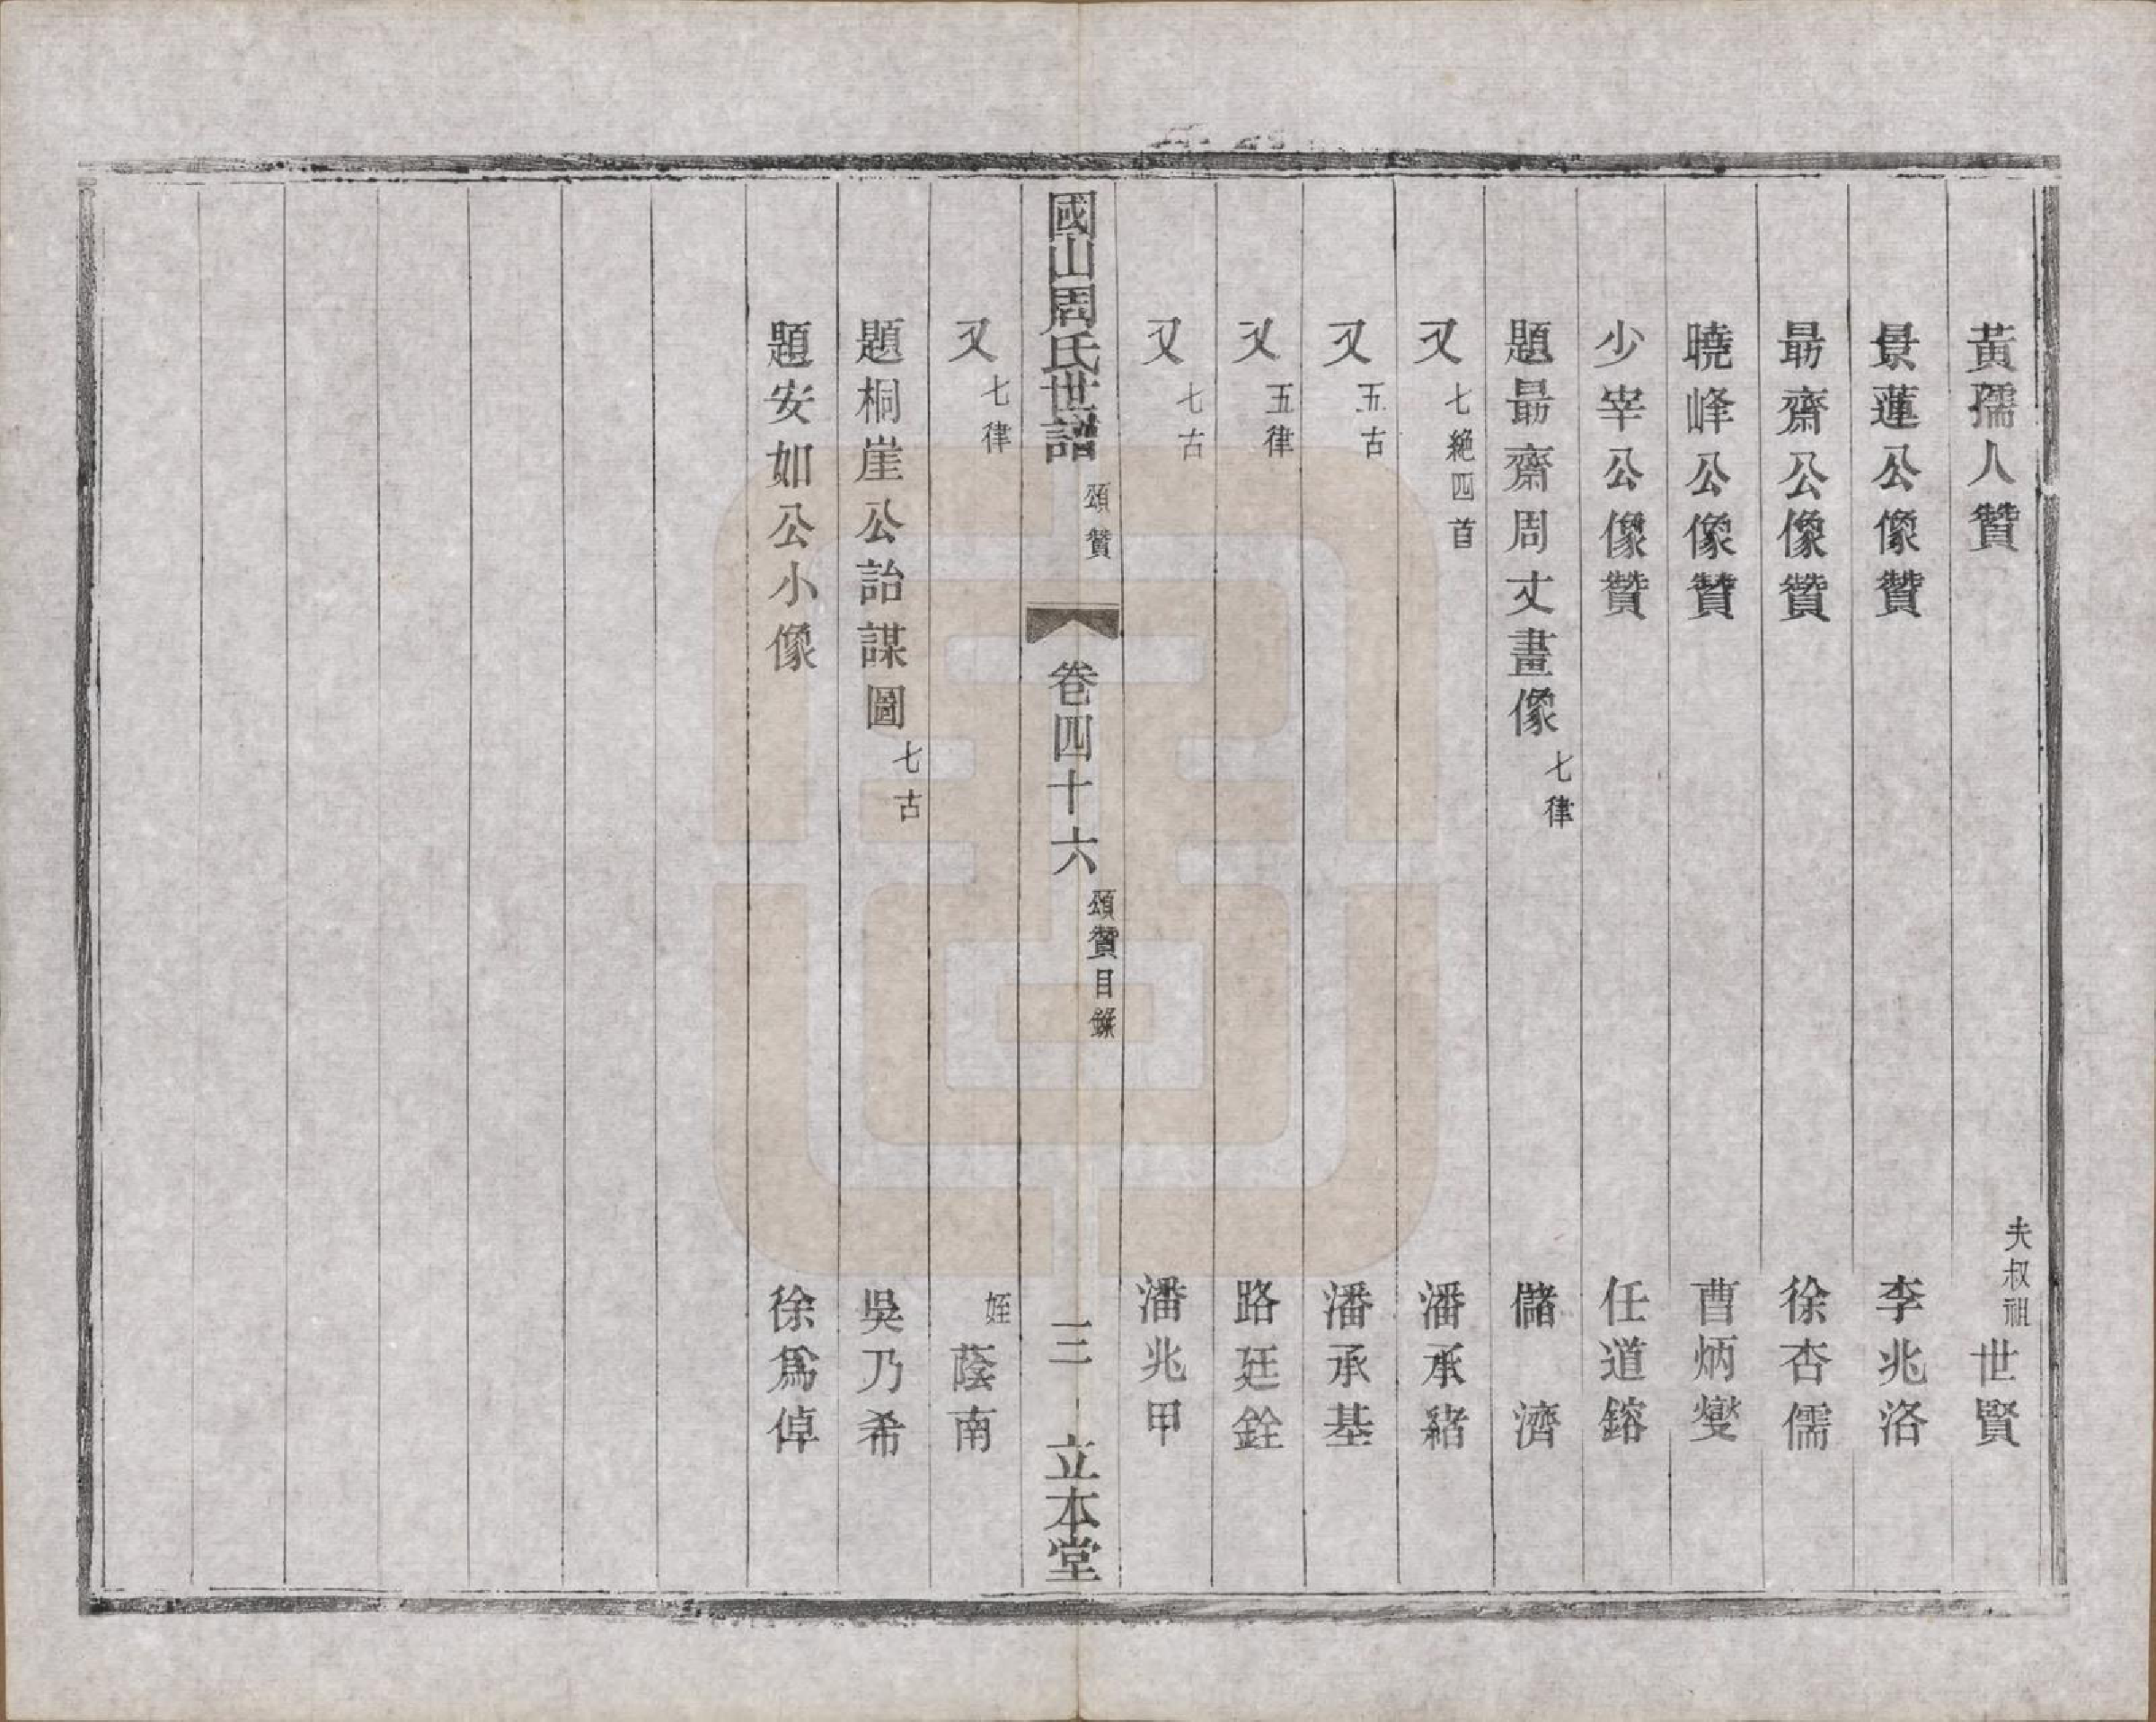 黃孺人贊 夫叔祖世賢
景蓮公像贊 李兆洛
最齋公像贊 徐杏儒
曉峰公像贊 曹炳燮
少宰公像贊 任道鎔
題最齋周丈畫像七律 儲濟
又七絕四首 潘承緒
又五古 潘承基
又五律 路廷銓
又七古 潘兆甲
國山周氏世譜 頌贊 卷四十六 頌贊目錄 三 立本堂
又七律 姪蔭南
題桐崖公詒謀圖七古 吳乃希
題安如公小像 徐爲倬